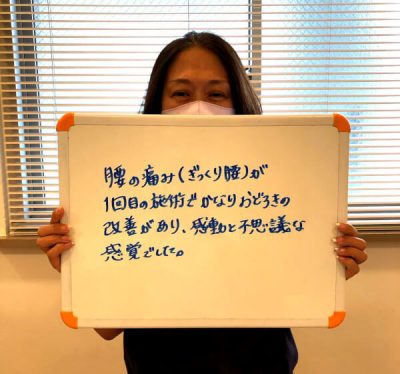 腰の痛み(ぎっくり腰)が
1回目の施術でかなりおどろきの
改善があり、感動と不思議な
感覚でした。